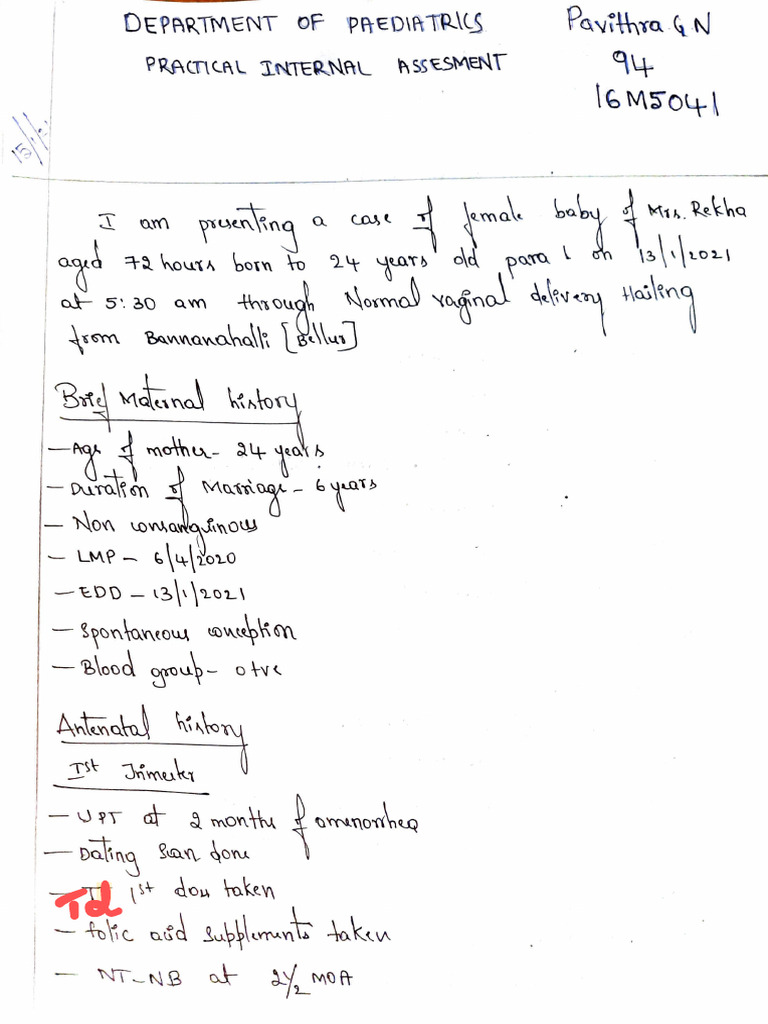 DEPARTMENT OF PAEDIATRICS
PRACTICAL INTERNAL ASSESMENT
Pavithra G N
94
16M5041
I am presenting a case of female baby of Mrs. Rekha
aged 72 hours born to 24 years old para 1 on 13/1/2021
at 5:30 am through Normal vaginal delivery Hailing
from Bannanahalli [Bellur]
Brief Maternal history
- Age of mother - 24 years
- Duration of Marriage - 6 years
- Non consanguinous
- LMP - 6/4/2020
- EDD - 13/1/2021
- Spontaneous conception
- Blood group - o+ve
Antenatal history
Ist Trimester
- UPT at 2 months of amenorrhea
- Dating scan done
- Td 1st dose taken
- folic acid supplements taken
- NT-NB at 2½ MOA